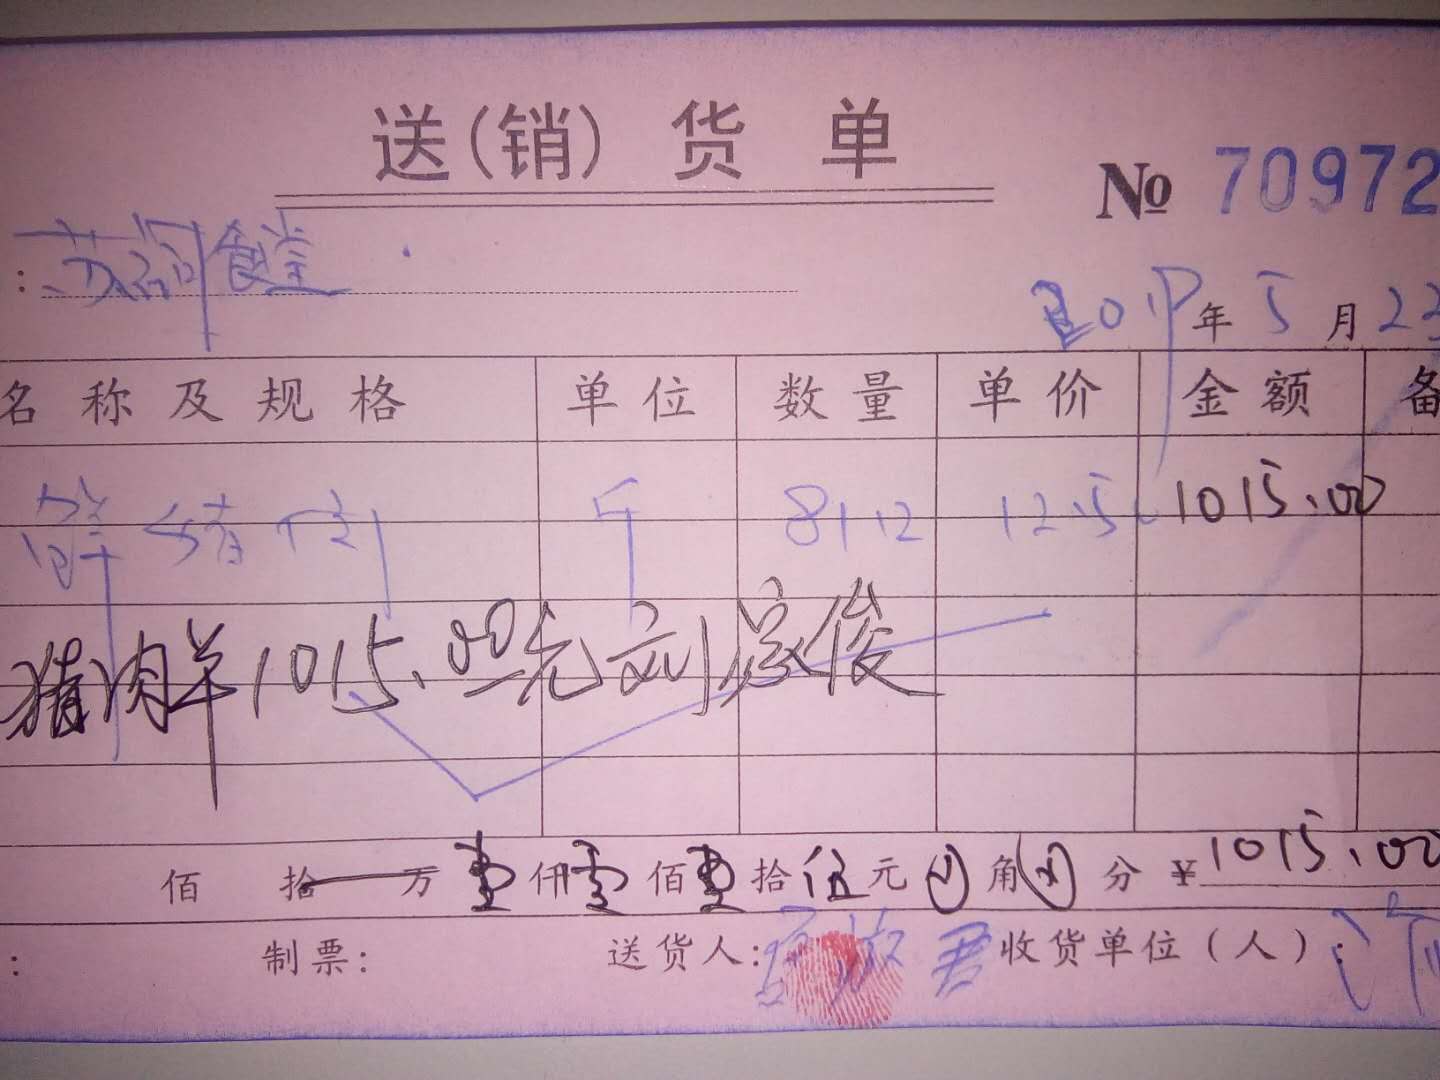 送(销)货单
№ 70972
: 苏润食堂
2019年5月22
名称及规格 单位 数量 单价 金额 备
鲜猪肉 斤 81.2 12.5 1015.00
猪肉羊1015.00元刘家俊
佰 拾 万 壹仟零佰壹拾伍元 角 分 ¥1015.00
: 制票: 送货人: 收货单位(人):